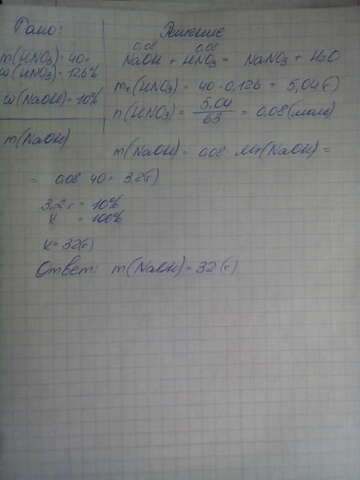 Дано:
m(HNO3)=40г
ω(HNO3)=12,6%
ω(NaOH)=10%
m(NaOH)
Решение
0,08 0,08
NaOH + HNO3 = NaNO3 + H2O
m₁(HNO3) = 40 · 0,126 = 5,04(г)
n(HNO3) = 5,04/63 = 0,08(моль)
m(NaOH) = 0,08 · Mr(NaOH) =
= 0,08 · 40 = 3,2(г)
3,2г = 10%
x = 100%
x = 32(г)
Ответ: m(NaOH) = 32(г)